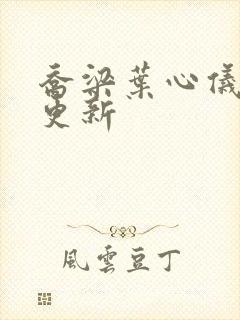 喬梁葉心儀
更新
風雲豆丁